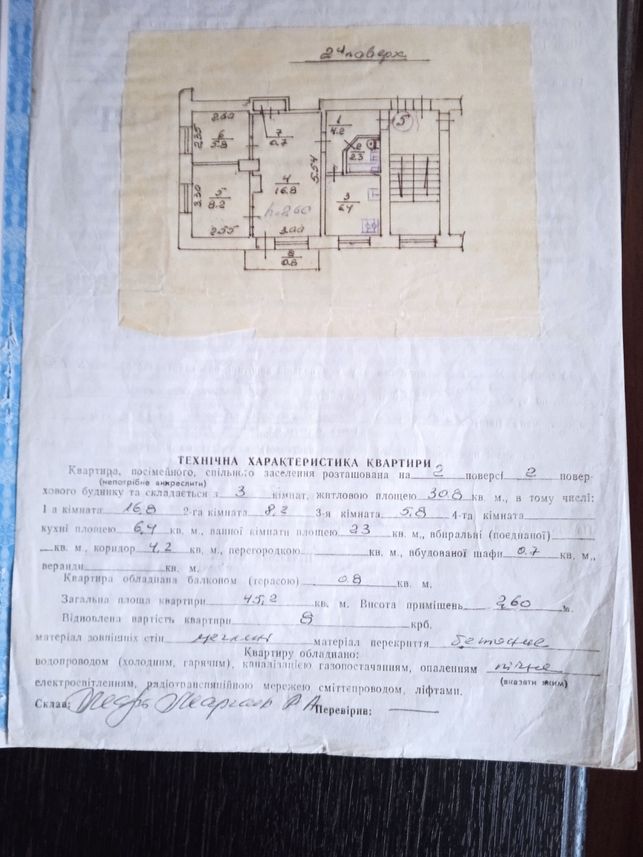 2й поверх
7
0.7
1
4.2
5
2.60
6
5.8
2.35
2
2.3
4
16.8
5.54
5
8.2
3.30
3
6.4
h=2.60
2.55
3.00
8
0.8
ТЕХНІЧНА ХАРАКТЕРИСТИКА КВАРТИРИ
Квартира, посімейного, спільного заселення розташована на 2 поверсі 2 повер-
(непотрібне викреслити)
хового будинку та складається з 3 кімнат, житловою площею 30.8 кв. м., в тому числі:
1 а кімната 16,8 2-га кімната 8,2 3-я кімната 5,8 4-та кімната
кухні площею 6,4 кв. м., ванної кімнати площею 2.3 кв. м., вбиральні (поєднаної)
кв. м., коридор 4,2 кв. м., перегородкою кв. м., вбудованої шафи 0.7 кв. м.,
веранди кв. м.
Квартира обладнана балконом (терасою) 0.8 кв. м.
Загальна площа квартири 45,2 кв. м. Висота приміщень 2,60 м.
Відновлена вартість квартири крб.
матеріал зовнішніх стін цеглин матеріал перекриття бетонне
Квартиру обладнано:
водопроводом (холодним, гарячим), каналізацією газопостачанням, опаленням пічне
електросвітленням, радіотрансляційною мережею сміттєпроводом, ліфтами. (вказати яким)
Склав: Перевірив: